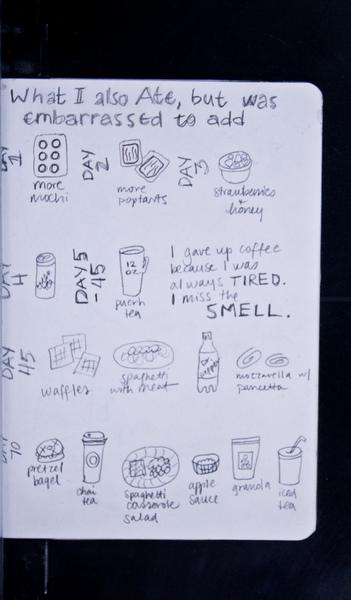 What I also Ate, but was
embarrassed to add
DAY 1
more
mochi
DAY 2
more
poptarts
DAY 3
strawberries
+
honey
DAY 4
DAY 5
-45
12
oz
puerh
tea
I gave up coffee
because I was
always TIRED.
I miss the
SMELL.
DAY
45
waffles
spaghetti
with meat
mozzarella w/
pancetta
DAY
70
pretzel
bagel
chai
tea
spaghetti
casserole
salad
apple
sauce
granola
iced
tea